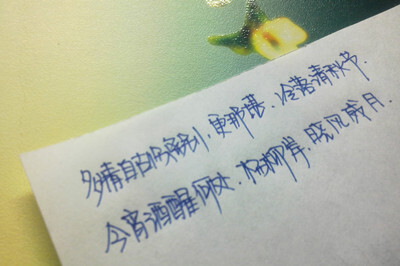 多情自古伤离别，更那堪、冷落清秋节.
今宵酒醒何处.杨柳岸、晓风残月.